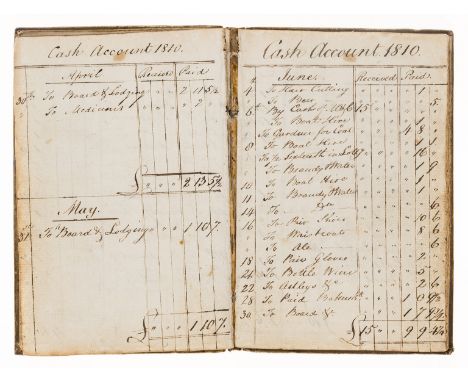 Cash Account 1810.
April Received Paid
30th To Board & Lodging " " " 2 11 5½
To Medicines " " " " 2 "
£ " " " 2 13 5½
May.
31 To Board & Lodging " " " 1 10 7.
£ " " " 1 10 7.
Cash Account 1810.
June. Received Paid.
4 To Hair Cutting " " " " 1 "
To Do " " " " " 6
By Cash 15
To Boat Hire " " " " 1 "
To Gardner for Coat 4 8
8 To Boat Hire " " " " 1 1
To 16
To Brandy & Water 1 9
10 To Boat Hire 1
11 To Brandy & Water
14 To 6
16 To Pair Shoes 10 6
To Waistcoats 8 6
To Ale 6
18 To Pair Gloves " " " " 2 "
24 To Bottle Wine " " " " 5 "
22 To Astleys &c " " " " 2 6
28 To Paid 1 0
30 To Board & 1 7 8½
£ 15 " " 9 9 4½